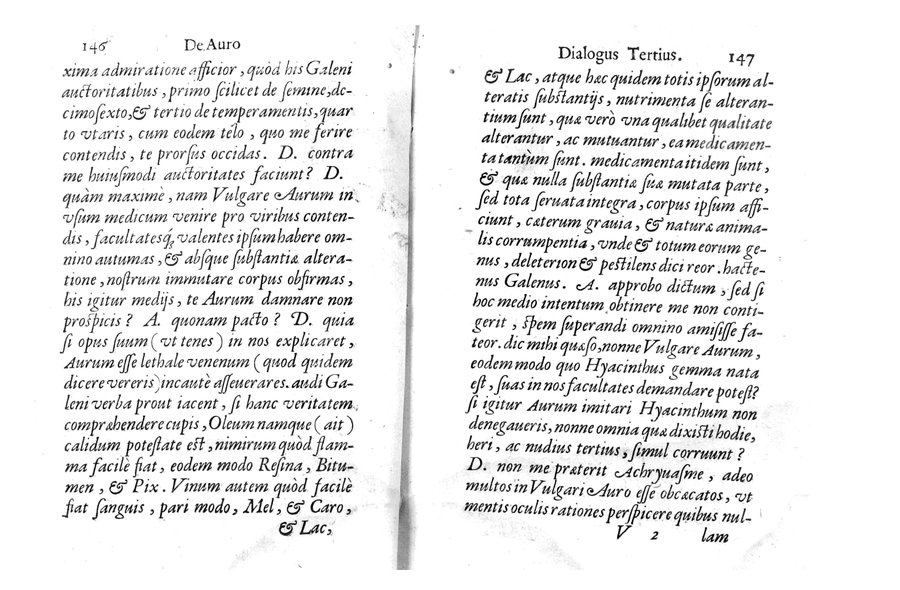 146 De Auro
xima admiratione afficior, quòd his Galeni
auctoritatibus, primo scilicet de semine, de-
cimosexto, & tertio de temperamentis, quar
to vtaris, cum eodem telo, quo me ferire
contendis, te prorsus occidas. D. contra
me huiusmodi auctoritates faciunt? D.
quàm maximè, nam Vulgare Aurum in
vsum medicum venire pro viribus conten-
dis, facultatesq́; valentes ipsum habere om-
nino autumas, & absque substantiæ altera-
tione, nostrum immutare corpus obfirmas,
his igitur medijs, te Aurum damnare non
prospicis? A. quonam pacto? D. quia
si opus suum (vt tenes) in nos explicaret,
Aurum esse lethale venenum (quod quidem
dicere vereris) incautè asseuerares. audi Ga-
leni verba prout iacent, si hanc veritatem
compræhendere cupis, Oleum namque (ait)
calidum potestate est, nimirum quòd flam-
ma facilè fiat, eodem modo Resina, Bitu-
men, & Pix. Vinum autem quòd facilè
fiat sanguis, pari modo, Mel, & Caro,
& Lac,
Dialogus Tertius. 147
& Lac, atque hæc quidem totis ipsorum al-
teratis substantijs, nutrimenta se alteran-
tium sunt, quæ verò vna qualibet qualitate
alterantur, ac mutuantur, ea medicamen-
ta tantùm sunt. medicamenta itidem sunt,
& quæ nulla substantiæ suæ mutata parte,
sed tota seruata integra, corpus ipsum affi-
ciunt, cæterum grauia, & naturæ anima-
lis corrumpentia, vnde & totum eorum ge-
nus, deleterion & pestilens dici reor. hacte-
nus Galenus. A. approbo dictum, sed si
hoc medio intentum obtinere me non conti-
gerit, spem superandi omnino amisisse fa-
teor. dic mihi quæso, nonne Vulgare Aurum,
eodem modo quo Hyacinthus gemma nata
est, suas in nos facultates demandare potest?
si igitur Aurum imitari Hyacinthum non
denegaueris, nonne omnia quæ dixisti hodie,
heri, ac nudius tertius, simul corruunt?
D. non me præterit Achryuasme, adeo
multos in Vulgari Auro esse obcæcatos, vt
mentis oculis rationes perspicere quibus nul-
V 2 lam